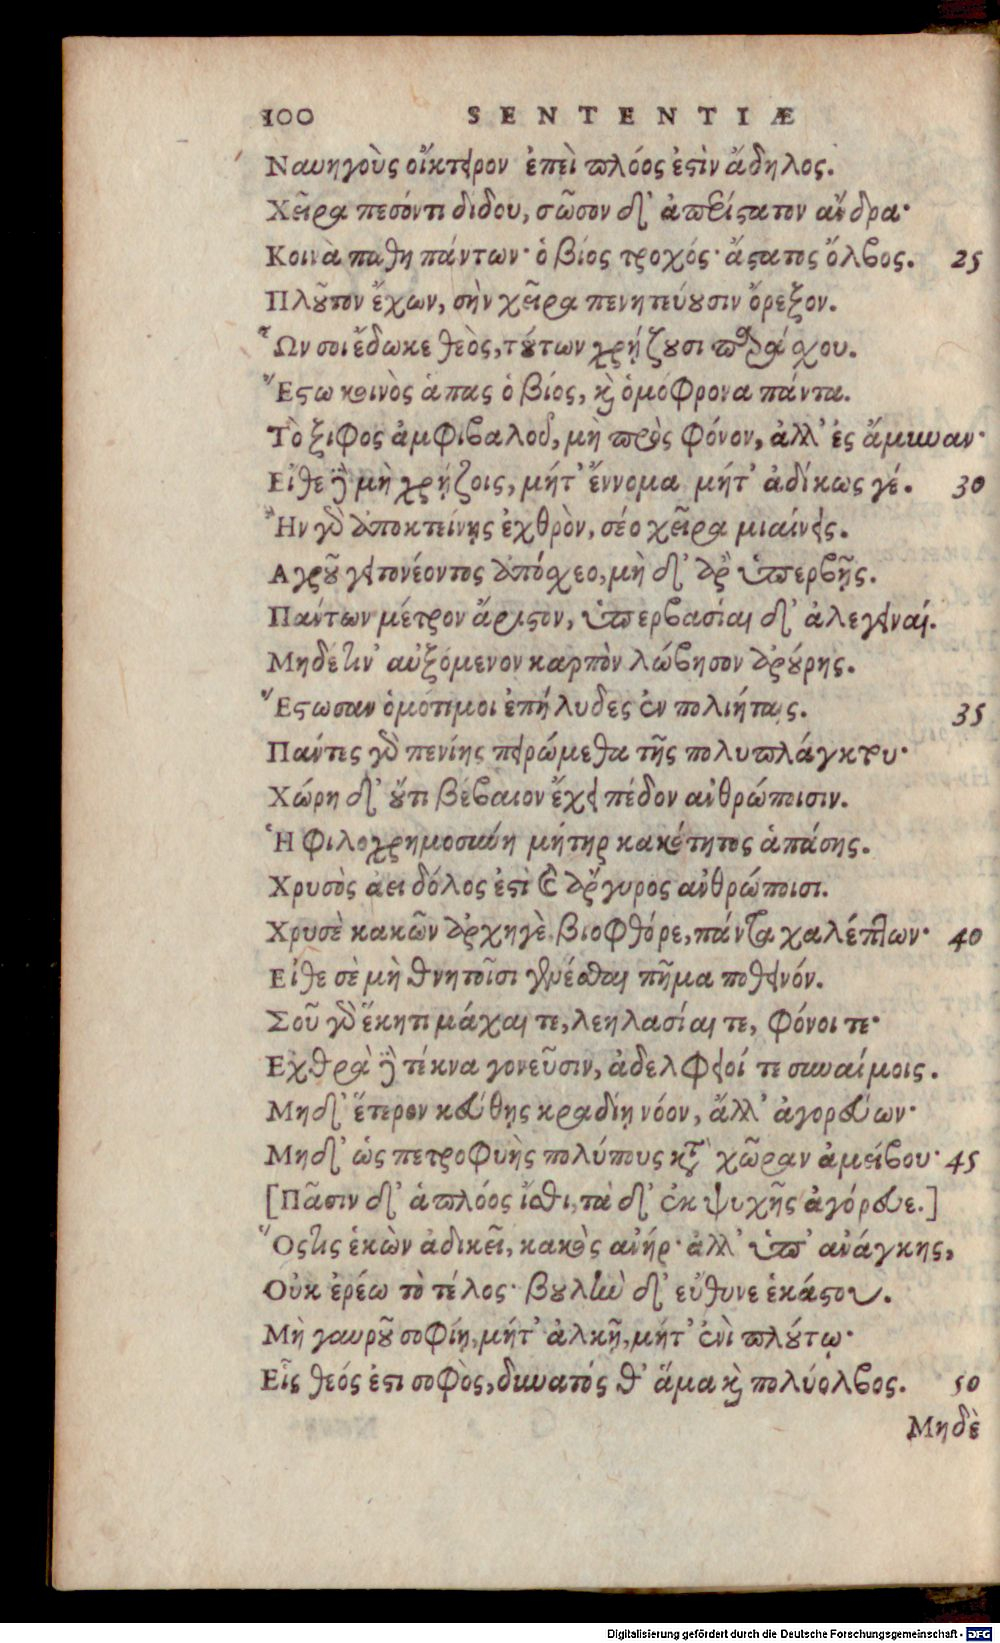 100 SENTENTIÆ
Ναυηγοὺς οἴκτειρον ἐπεὶ πλόος ἐστὶν ἄδηλος.
Χεῖρα πεσόντι δίδου, σῶσον δ' ἀπερίστατον ἄνδρα·
Κοινὰ παθη πάντων· ὁ βίος τροχός· ἄστατος ὄλβος. 25
Πλοῦτον ἔχων, σὴν χεῖρα πενητεύουσιν ὄρεξον.
Ὧν σοι ἔδωκε θεὸς, τούτων χρήζουσι παράσχου.
Ἔστω κοινὸς ἁπας ὁ βίος, καὶ ὁμόφρονα πάντα.
Τὸ ξιφος ἀμφιβαλοῦ, μὴ πρὸς φόνον, ἀλλ' ἐς ἄμυναν·
Εἴθε δὲ μὴ χρήζοις, μήτ' ἔννομα μήτ' ἀδίκως γέ. 30
Ἢν γὰρ ἀποκτείνῃς ἐχθρὸν, σέο χεῖρα μιαίνεις.
Αγροῦ γειτονέοντος ἀπόσχεο, μὴ δ' ἄρ' ὑπερβῇς.
Πάντων μέτρον ἄριστον, ὑπερβασίαι δ' ἀλεγειναί.
Μηδέτιν' αὐξόμενον καρπὸν λώβησον ἀρούρης.
Ἔστωσαν ὁμότιμοι ἐπήλυδες ἐν πολιήταις. 35
Πάντες γὰρ πενίης πειρώμεθα τῆς πολυπλάγκτου·
Χώρη δ' οὔτι βέβαιον ἔχει πέδον ἀνθρώποισιν.
Ἡ φιλοχρημοσύνη μήτηρ κακότητος ἁπάσης.
Χρυσὸς ἀεὶ δόλος ἐστὶ καὶ ἄργυρος ἀνθρώποισι.
Χρυσὲ κακῶν ἀρχηγὲ βιοφθόρε, πάντα χαλέπτων· 40
Εἴθε σὲ μὴ θνητοῖσι γενέσθαι πῆμα ποθεινόν.
Σοῦ γὰρ ἕκητι μάχαι τε, λεηλασίαι τε, φόνοι τε·
Εχθρὰ δὲ τέκνα γονεῦσιν, ἀδελφειοί τε συναίμοις.
Μηδ' ἕτερον κεύθῃς κραδίῃ νόον, ἄλλ' ἀγορεύων·
Μηδ' ὡς πετροφυὴς πολύπους κατὰ χῶραν ἀμείβου· 45
[Πᾶσιν δ' ἁπλόος ἴσθι, τὰ δ' ἐκ ψυχῆς ἀγόρευε.]
Ὅστις ἑκὼν ἀδικεῖ, κακὸς ἀνήρ· ἀλλ' ὑπ' ἀνάγκης,
Οὐκ ἐρέω τὸ τέλος· βουλὴν δ' εὔθυνε ἑκάστου.
Μὴ γαυροῦ σοφίῃ, μήτ' ἀλκῇ, μήτ' ἐνὶ πλούτῳ·
Εἷς θεός ἐστι σοφὸς, δυνατός θ' ἅμα καὶ πολύολβος. 50
Μηδὲ
Digitalisierung gefördert durch die Deutsche Forschungsgemeinschaft - DFG